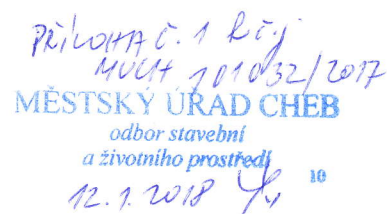 PŘÍLOHA č. 1 k č.j.
MUCH 101032/2017
MĚSTSKÝ ÚŘAD CHEB
odbor stavební
a životního prostředí
10
12. 1. 2018